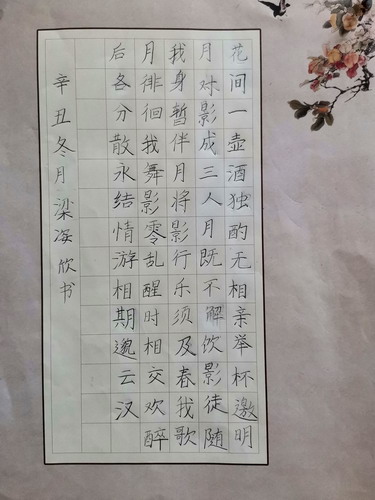 花间一壶酒独酌无相亲举杯邀明
月对影成三人月既不解饮影徒随
我身暫伴月将影行乐须及春我歌
月徘徊我舞影零乱醒时相交欢醉
后各分散永结情游相期邈云汉
辛丑冬月梁姿欣书